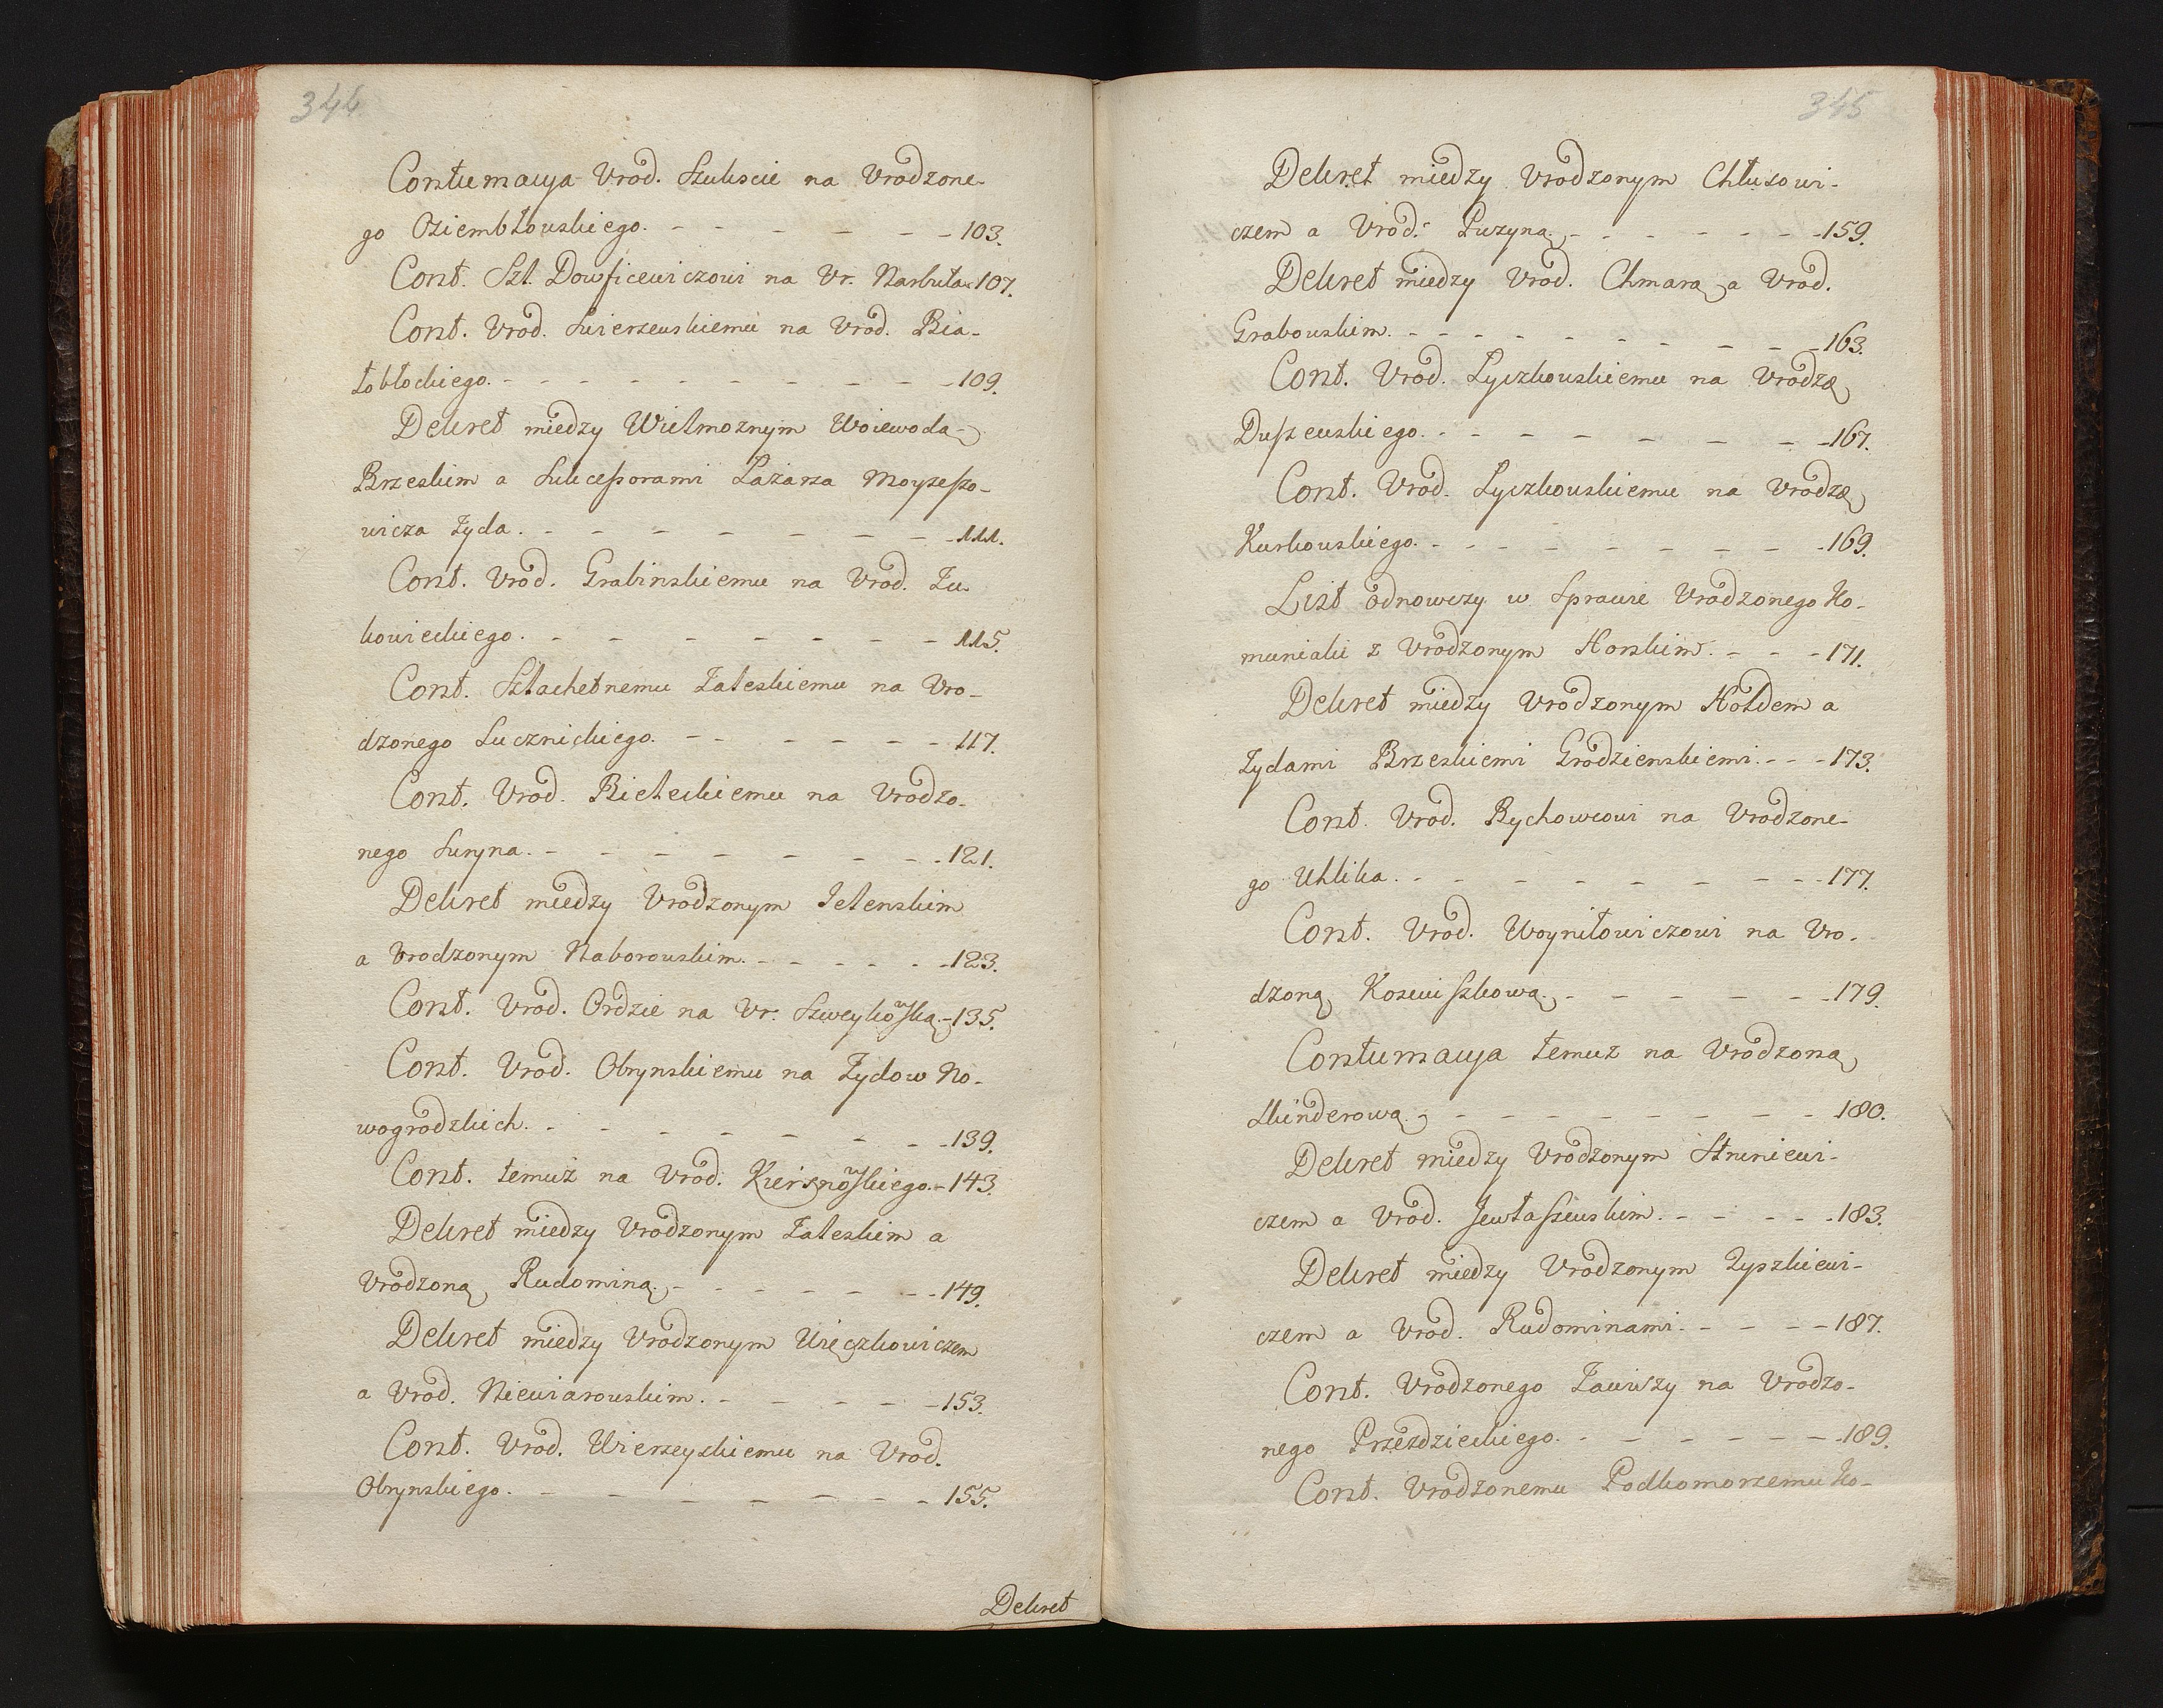 344
Contumacya Vrod. Szukscie na Vrodzone-
go Oziembłowskiego. - - - - - - - 103.
Cont. Szl. Dowficewiczowi na Vr. Narbuta - 107.
Cont. Vrod. Swierzewskiemu na Vrod. Bia-
łobłockiego. - - - - - - - - - 109.
Dekret miedzy Wielmoznym Woiewodą
Brzeskim a Sukceßorami Łazarza Moyzeßo-
wicza Zyda. - - - - - - - - 111.
Cont. Vrod. Grabinskiemu na Vrod. Zu-
kowieckiego. - - - - - - - - 115.
Cont. Szlachetnemu Zaleskiemu na Vro-
dzonego Lucznickiego. - - - - - - 117.
Cont. Vrod. Bieleckiemu na Vrodzo-
nego Suryna. - - - - - - - - 121.
Dekret miedzy Vrodzonym Jelenskim
a Vrodzonym Naborowskim. - - - - - - 123.
Cont. Vrod. Ordzie na Vr. Szweykowską - 135.
Cont. Vrod. Obrynskiemu na Zydow No-
wogrodzkich. - - - - - - - - 139.
Cont. temuz na Vrod. Kiersnowskiego. - 143.
Dekret miedzy Vrodzonym Zaleskim a
Vrodzoną Rudominą. - - - - - - - 149.
Dekret miedzy Vrodzonym Więczkowiczem
a Vrod. Niewiarowskim. - - - - - 153.
Cont. Vrod. Wierzeyskiemu na Vrod.
Obrynskiego. - - - - - - - - 155.
Dekret
345
Dekret miedzy Vrodzonym Chłusowi-
czem a Vrod. Puzyną. - - - - - - - 159.
Dekret miedzy Vrod. Chmarą a Vrod.
Grabowskim. - - - - - - - - - 163.
Cont. Vrod. Łyczkowskiemu na Vrodzę
Dußewskiego. - - - - - - - - 167.
Cont. Vrod. Łyczkowskiemu na Vrodzę
Kurkowskiego. - - - - - - - - 169.
List odnowczy w Sprawie Vrodzonego Ko-
muniaki z Vrodzonym Horskim. - - - 171.
Dekret miedzy Vrodzonym Hołdem a
Zydami Brzeskiemi Grodzienskiemi. - - - 173.
Cont. Vrod. Bychowcowi na Vrodzone-
go Uklika. - - - - - - - - - 177.
Cont. Vrod. Woyniłowiczowi na Vro-
dzoną Kosciuszkową. - - - - - - 179.
Contumacya temuz na Vrodzoną
Skinderową. - - - - - - - - 180.
Dekret miedzy Vrodzonym Struniewi-
czem a Vrod. Jewłaszewskim. - - - - - 183.
Dekret miedzy Vrodzonym Zyszkiewi-
czem a Vrod. Rudominami. - - - - - 187.
Cont. Vrodzonego Zawiszy na Vrodzo-
nego Przezdzieckiego. - - - - - - 189.
Cont. Vrodzonemu Podkomorzemu Ko-